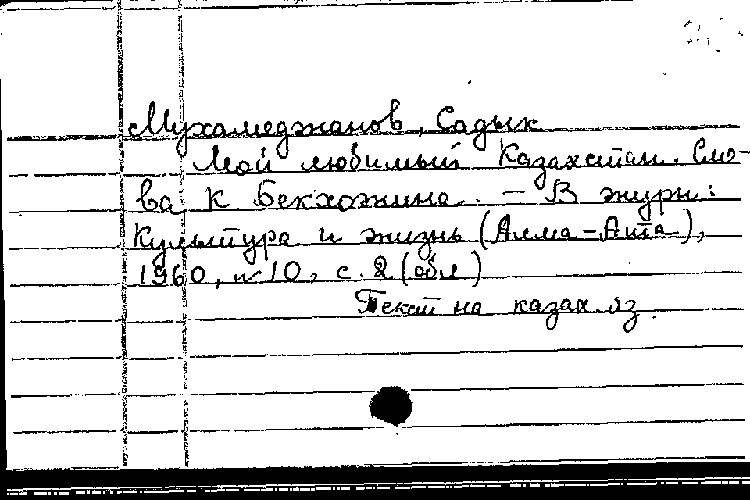 Мухамеджанов, Садык
Мой любимый Казахстан. Сло-
ва К Бекхожина. – В журн:
Культура и жизнь (Алма-Ата),
1960, № 10, с. 2 (обл)
Текст на казах. яз.